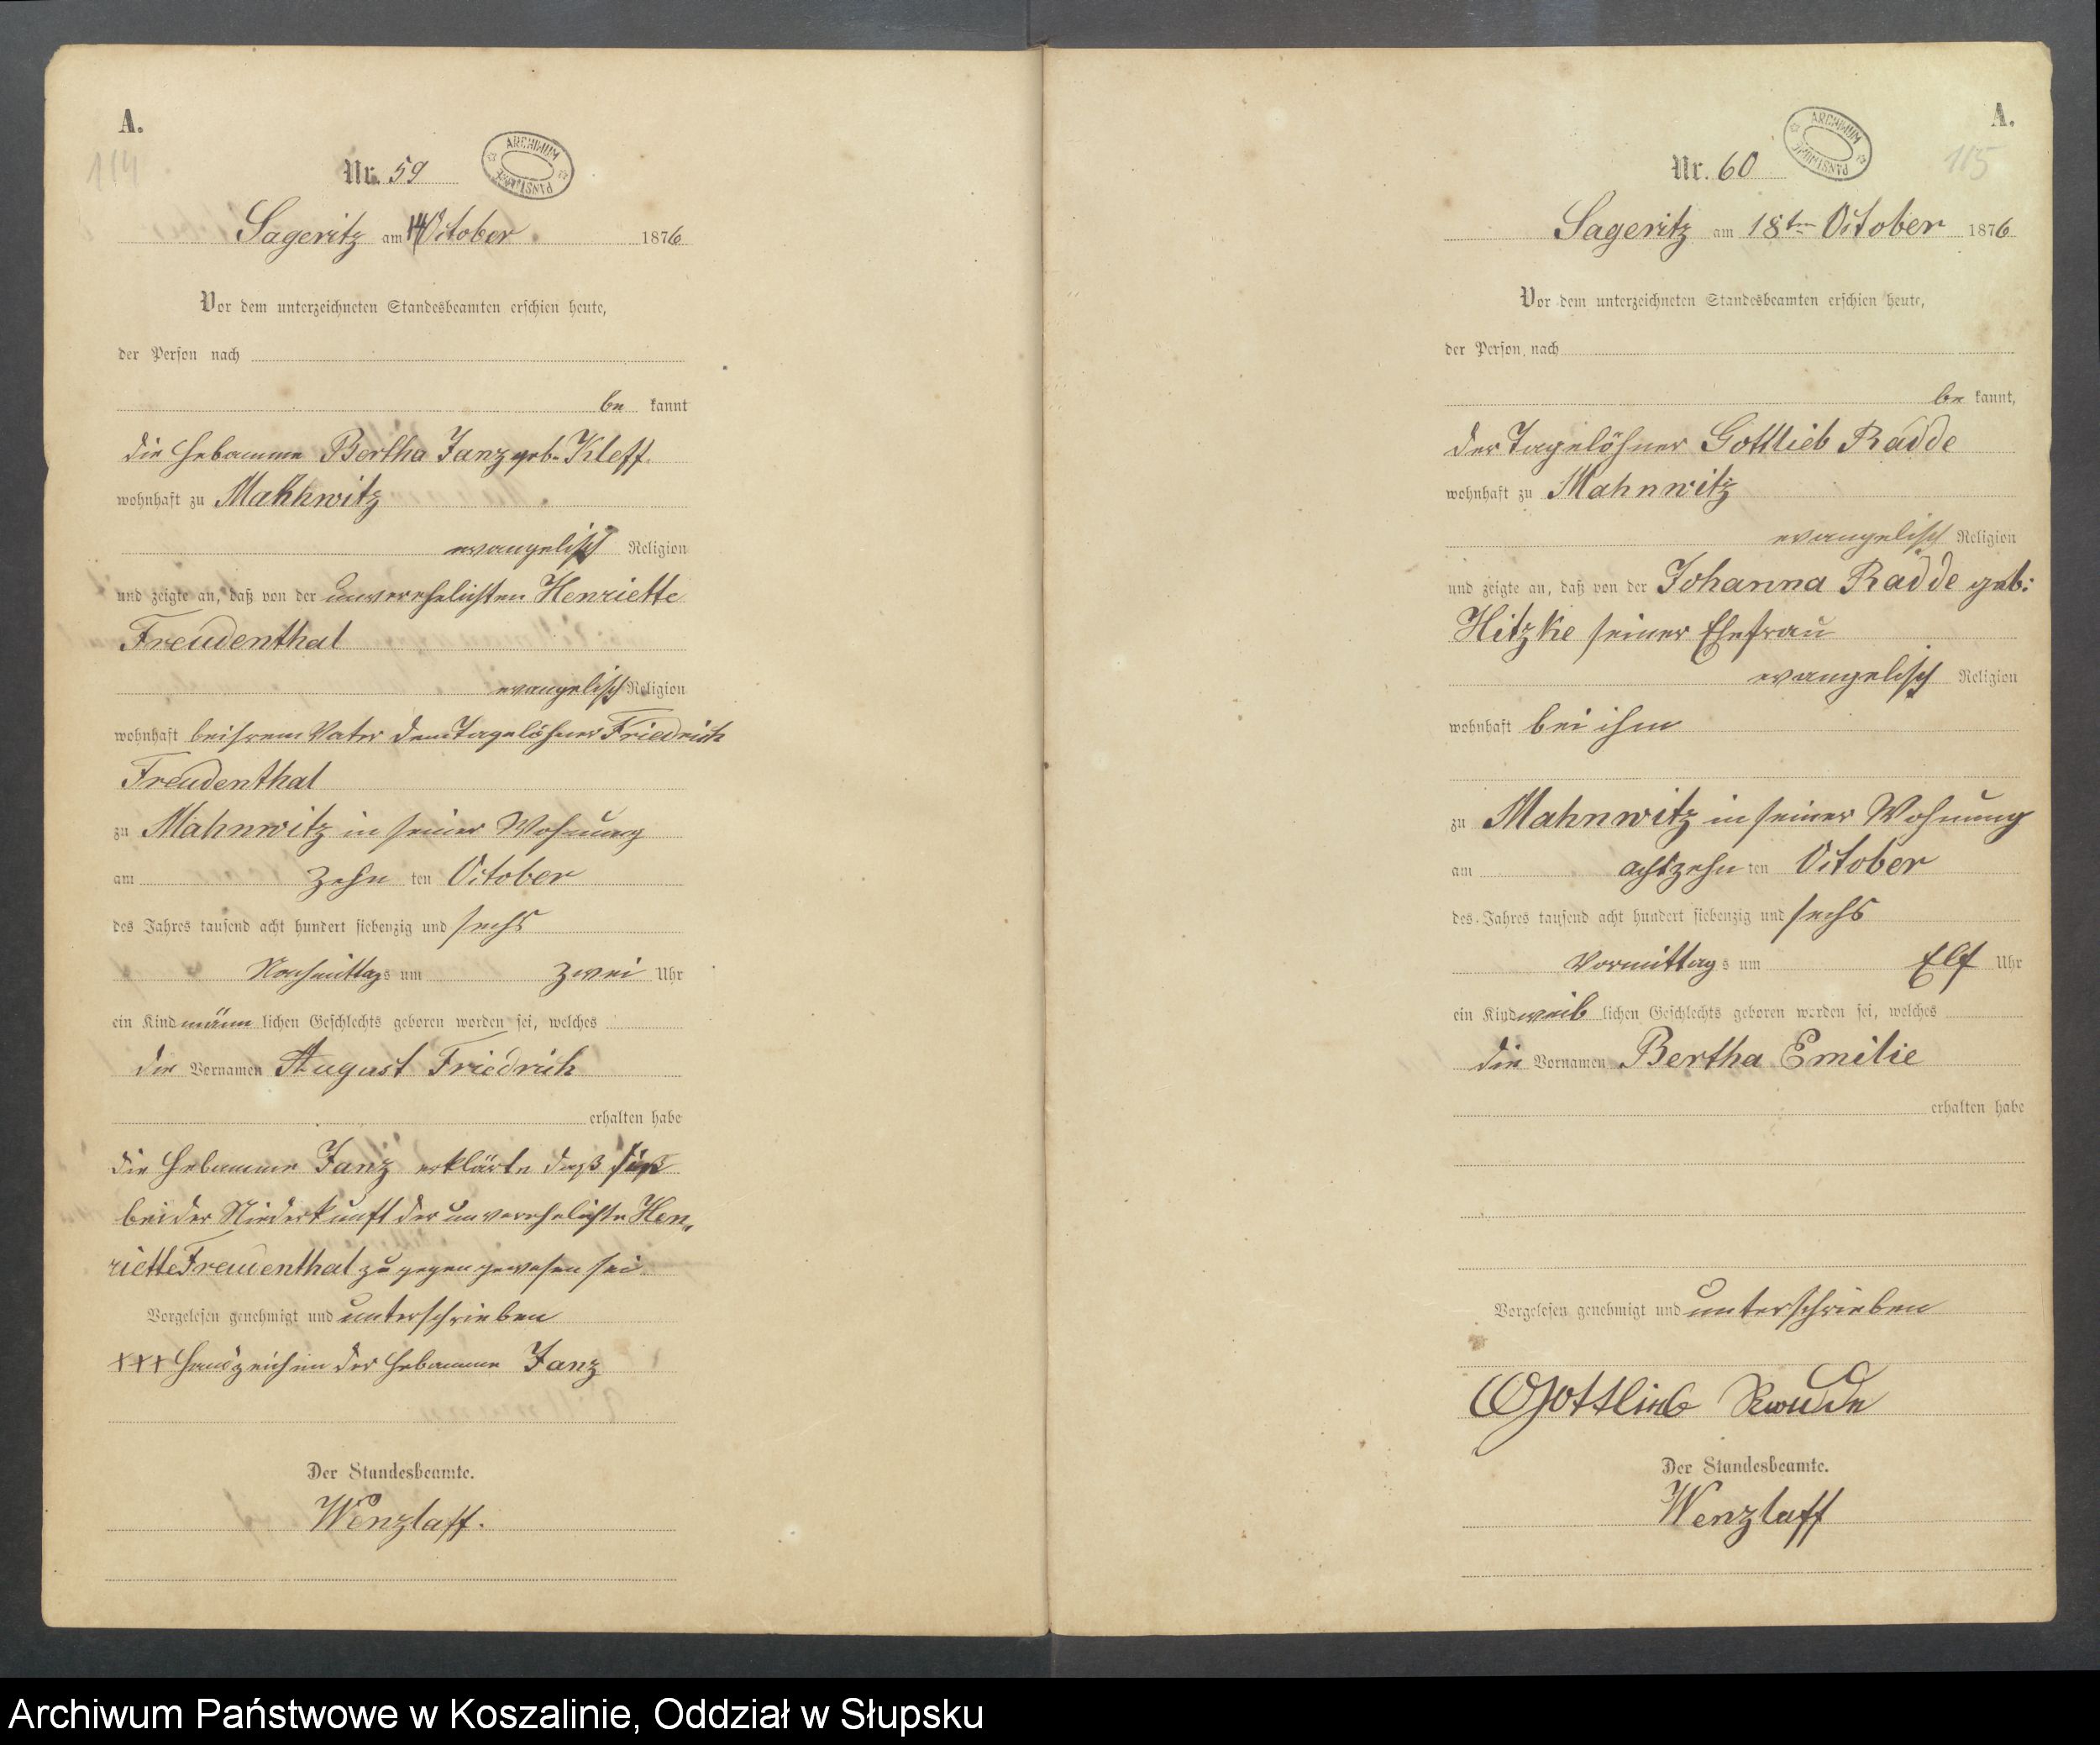 A.
114
Nr. 59
ARCHIWUM PAŃSTWOWE
Sageritz am 14 October 1876
Vor dem unterzeichneten Standesbeamten erschien heute,
der Person nach
be kannt
die Hebamme Bertha Janz geb. Kleff.
wohnhaft zu Mahnwitz
evangelisch Religion
und zeigte an, daß von der unverehelichten Henriette
Freudenthal
evangelisch Religion
wohnhaft bei ihrem Vater dem Tagelöhner Friedrich
Freudenthal
zu Mahnwitz in seiner Wohnung
am zehn ten October
des Jahres tausend acht hundert siebenzig und sechs
Nachmittags um zwei Uhr
ein Kind männ lichen Geschlechts geboren worden sei, welches
die Vornamen August Friedrich
erhalten habe
die Hebamme Janz erklärte daß sie
bei der Niederkunft der unverehelichte Hen„
riette Freudenthal zu gegen gewesen sei.
Vorgelesen genehmigt und unterschrieben
+++ Handzeichen der Hebamme Janz
Der Standesbeamte.
Wenzlaff.
A.
115
Nr. 60
ARCHIWUM PAŃSTWOWE
Sageritz am 18ten October 1876
Vor dem unterzeichneten Standesbeamten erschien heute,
der Person nach
be kannt,
der Tagelöhner Gottlieb Radde
wohnhaft zu Mahnwitz
evangelisch Religion
und zeigte an, daß von der Johanna Radde geb:
Hitzke seiner Ehefrau
evangelisch Religion
wohnhaft bei ihm
zu Mahnwitz in seiner Wohnung
am achtzehn ten October
des Jahres tausend acht hundert siebenzig und sechs
Vormittags um Elf Uhr
ein Kind weib lichen Geschlechts geboren worden sei, welches
die Vornamen Bertha Emilie
erhalten habe
Vorgelesen genehmigt und unterschrieben
Gottlieb Radde
Der Standesbeamte.
Wenzlaff
Archiwum Państwowe w Koszalinie, Oddział w Słupsku